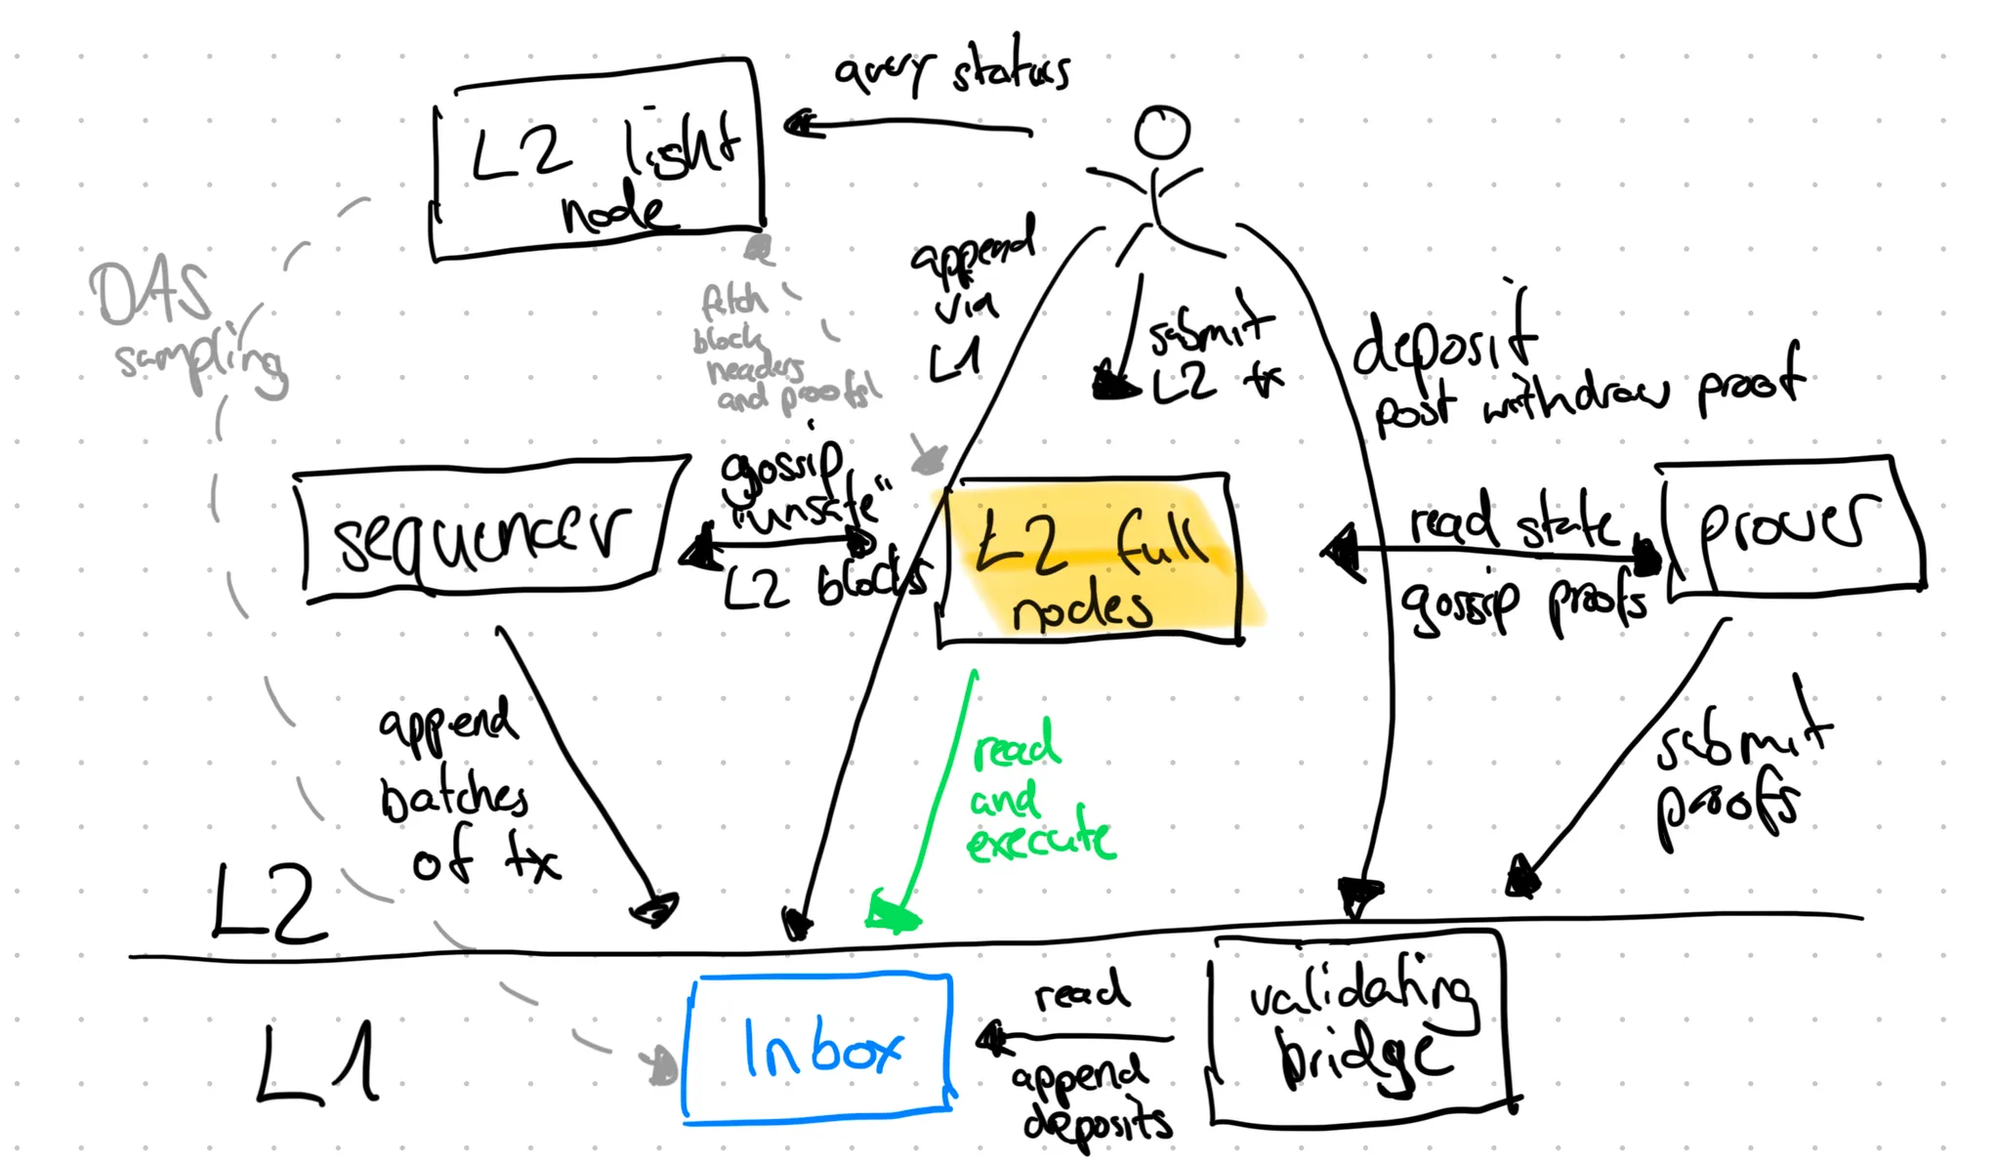 query status
L2 light
node
DAS
sampling
fetch
block
headers
and proofs!
append
via
L1
submit
L2 tx
deposit
post withdraw proof
sequencer
gossip
"unsafe"
L2 blocks
L2 full
nodes
read state
gossip proofs
prover
append
batches
of tx
read
and
execute
submit
proofs
L2
L1
Inbox
read
append
deposits
validating
bridge